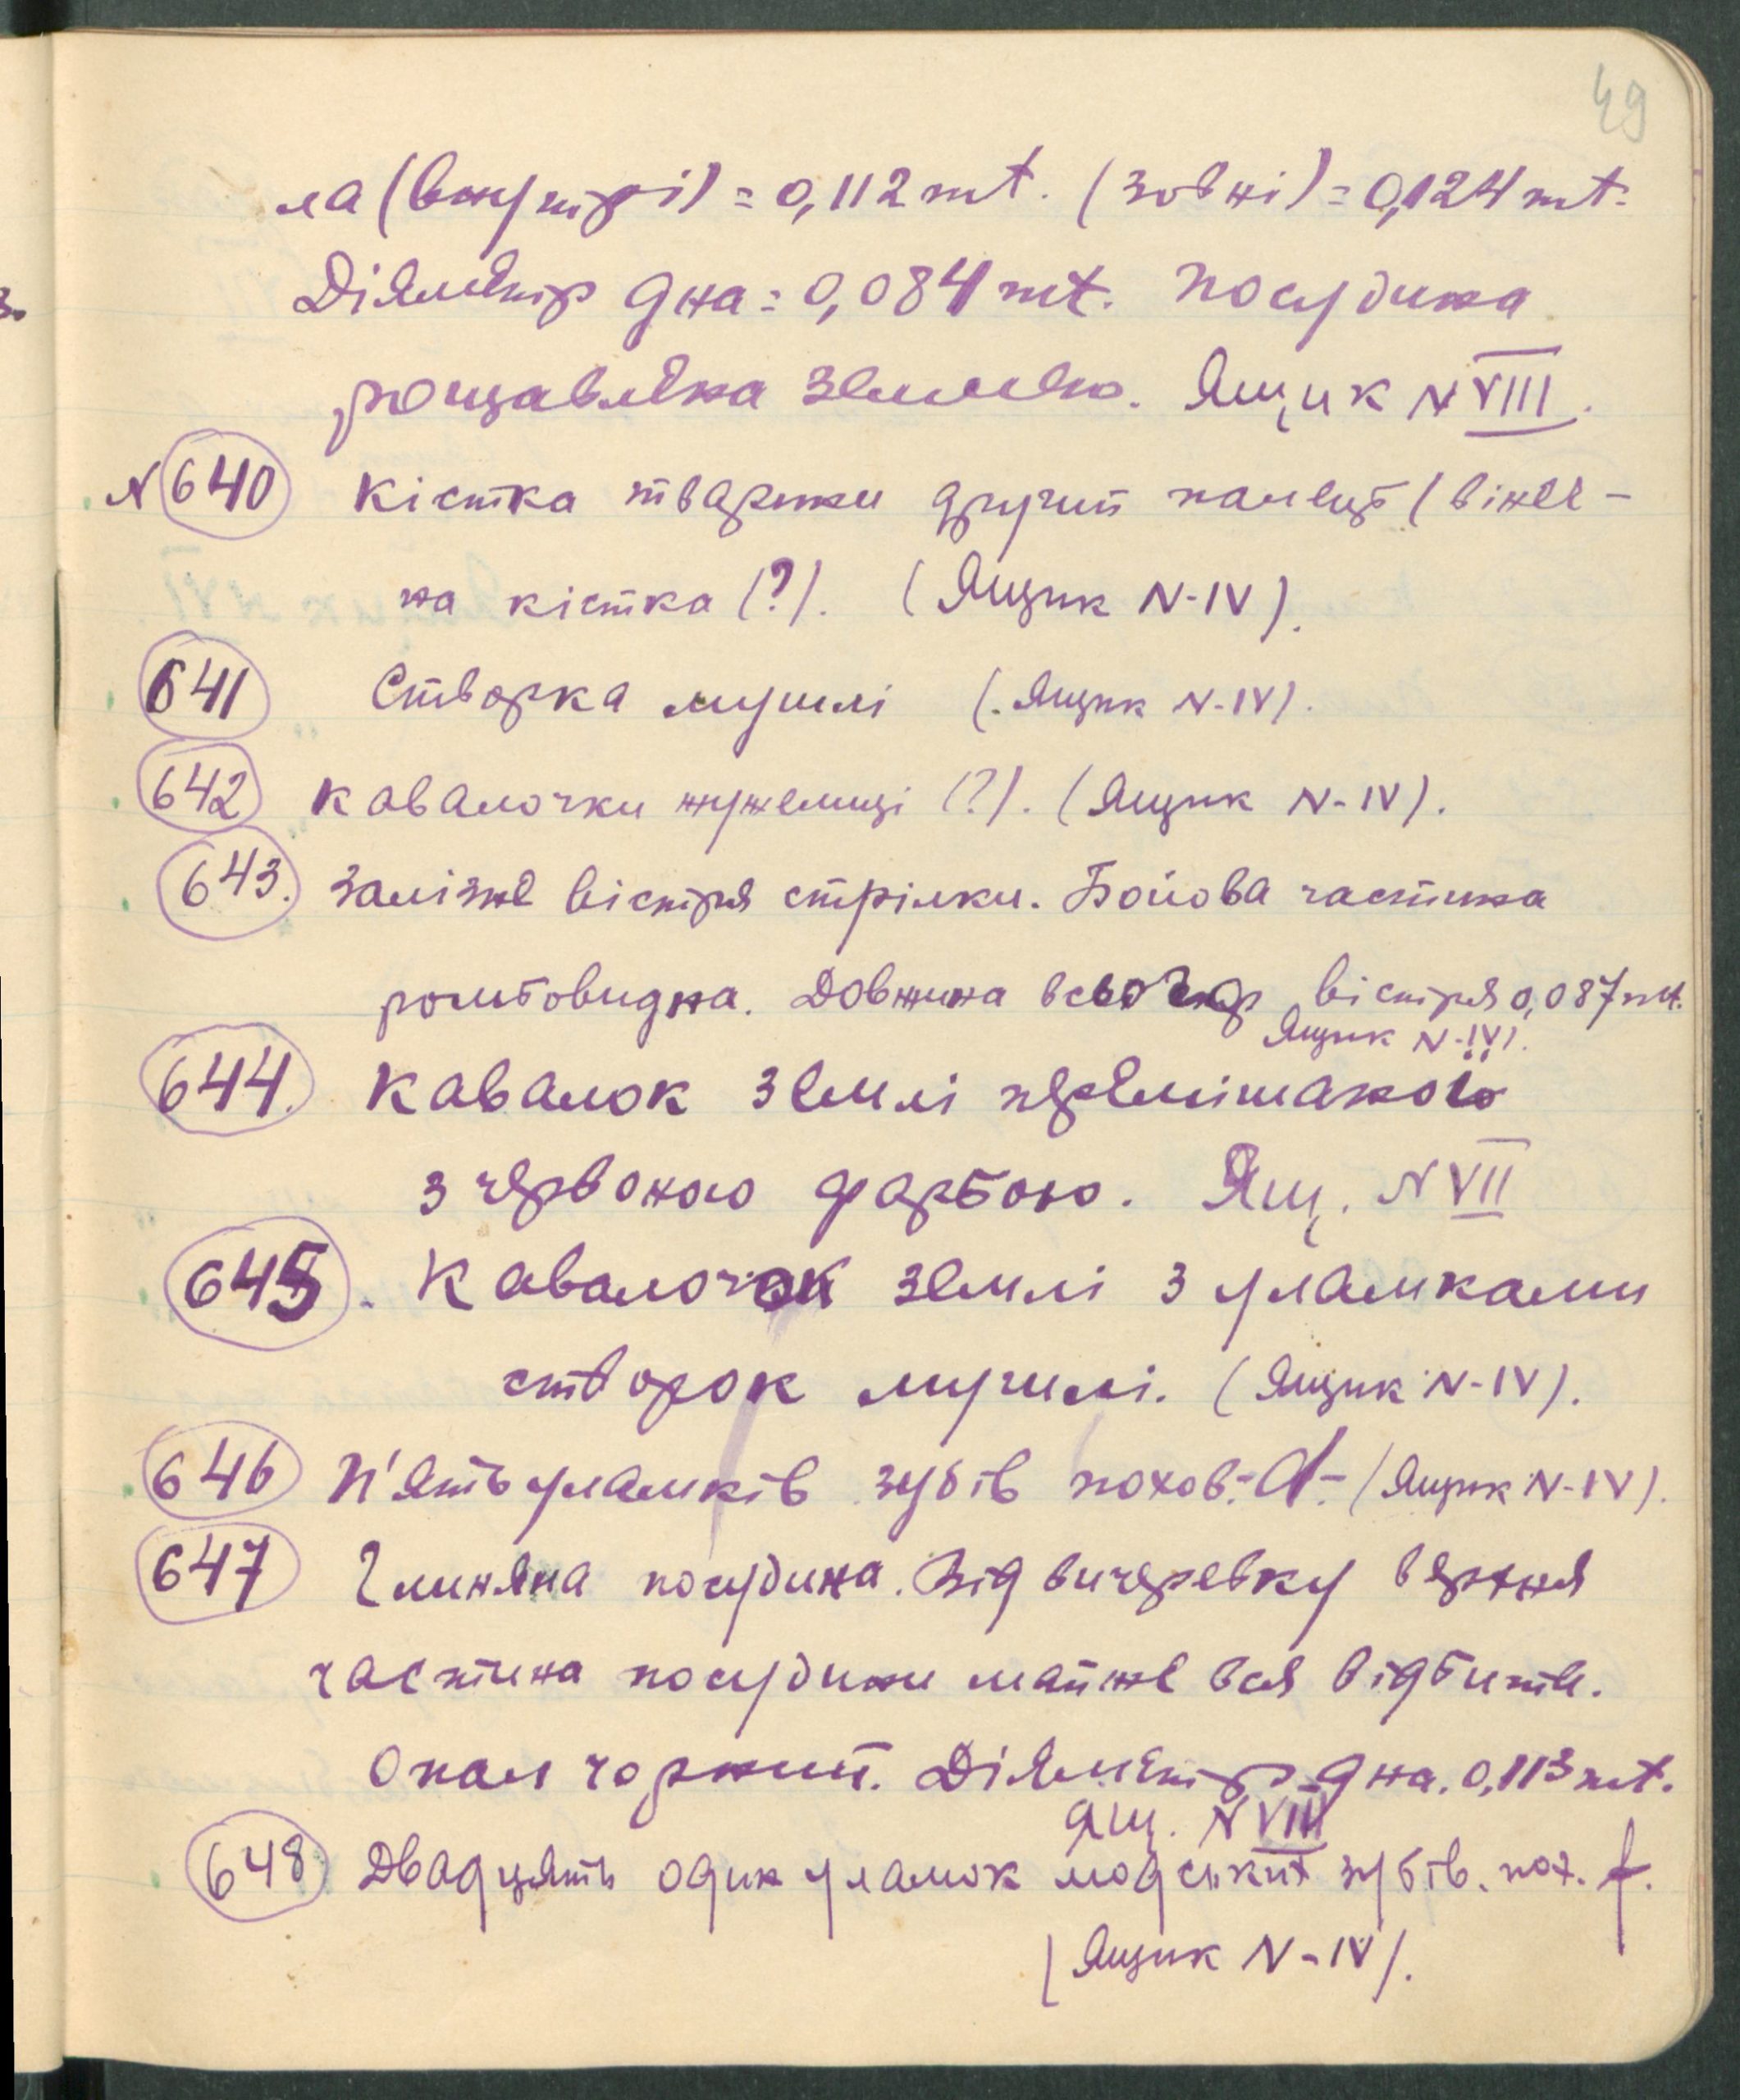 49
ла (внутрі) = 0,112 mt. (зовні) = 0,124 mt.
Діяметр дна = 0,084 mt. Посудина
рощавлена землею. Ящик N VIII.
N 640 Кістка тварини другий палець (вінеч-
на кістка (?). (Ящик N-IV).
641 Створка мушлі (Ящик N-IV).
642 Кавалочки жужелиці (?). (Ящик N-IV).
643. Залізне вістря стрілки. Бойова частина
ромбовидна. Довжина всього вістря 0,087 mt.
Ящик N-IV).
644. Кавалок землі перемішаної
з червоною фарбою. Ящ. N VII
645. Кавалочок землі з уламками
створок мушлі. (Ящик N-IV).
646 П'ять уламків зубів похов.-А.- (Ящик N-IV).
647 Глиняна посудина. Від вичеревку верхня
частина посудини майже вся відбита.
Опал чорний. Діяметр дна. 0,113 mt.
Ящ. N VIII
648 Двадцять один уламок людських зубів. пох. f.
(Ящик N-IV).